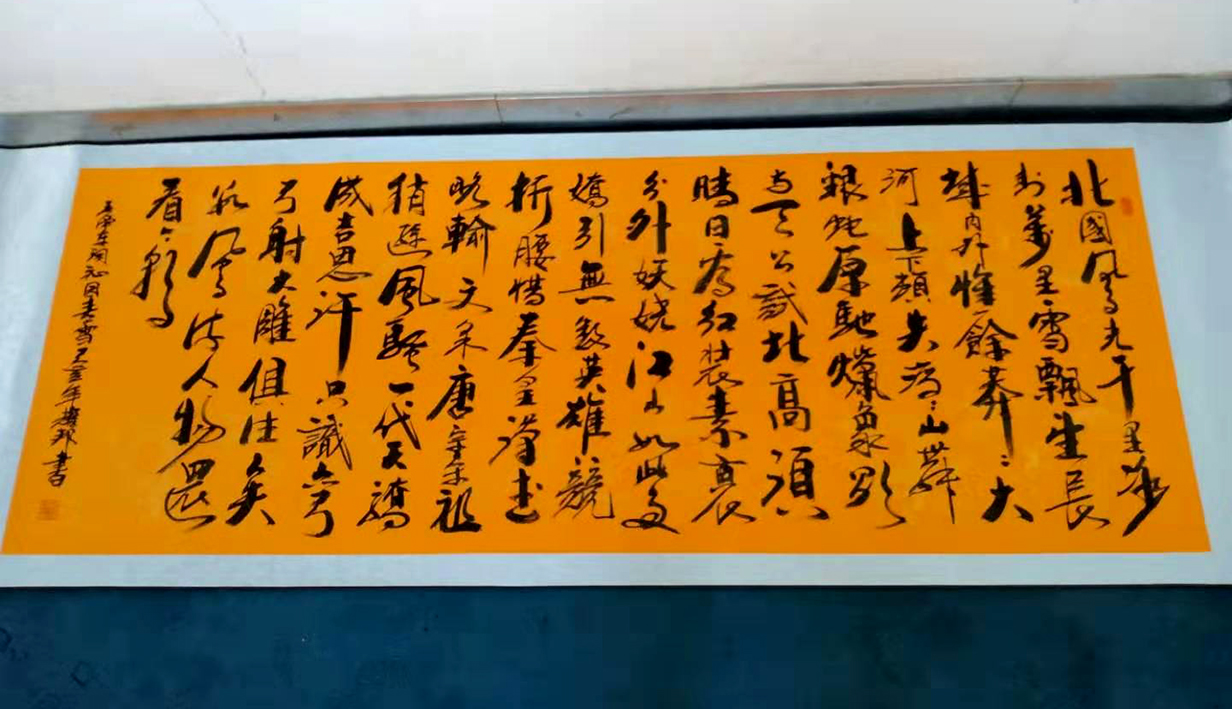 北國風光千里冰
封萬里雪飄望長
城内外惟餘莽〻大
河上下頓失滔〻山舞
銀蛇原馳爤象欲
与天公試比高須
晴日看红裝素裹
分外妖娆江山如此多
嬌引無数英雄競
折腰惜秦皇漢武
略輸文采唐宗宋祖
稍遜風騷一代天驕
成吉思汗只識弯
弓射大雕俱往矣
数風流人物還
看今朝
毛澤东词沁园春雪壬寅年 书